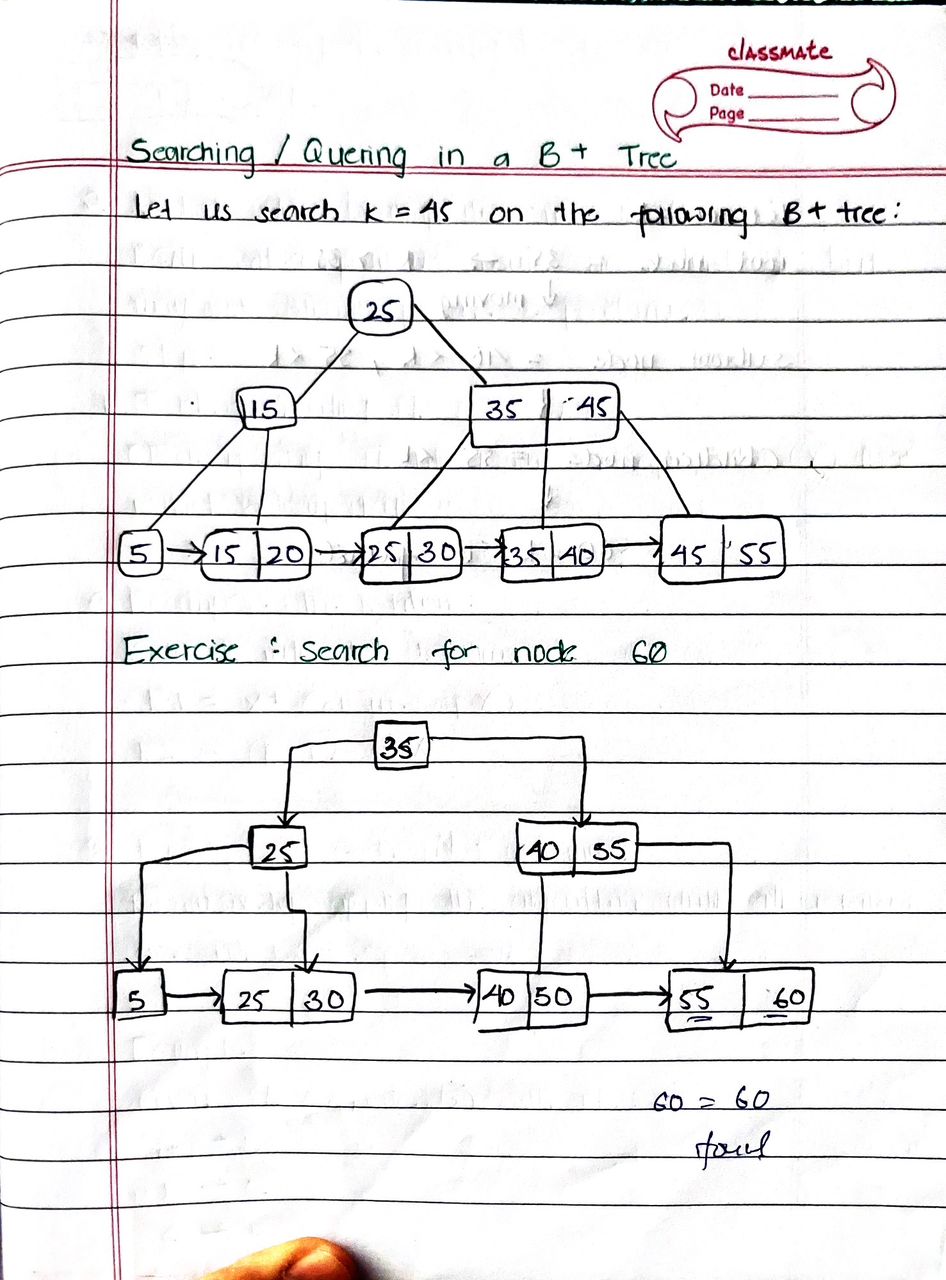 classmate
Date
Page
Searching / Quering in a B+ Tree
Let us search K = 45 on the following B+ tree:
25
15 35 45
5 15 20 25 30 35 40 45 55
Exercise : Search for node 60
35
25 40 55
5 25 30 40 50 55 60
60 = 60